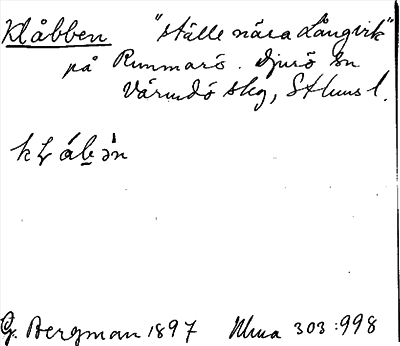 Klåbben "ställe nära Långvik"
på Runmarö. Djurö sn
Värmdö skg, Sthms l.
kɫåb̲ən
G. Bergman 1897 Muua 303:998